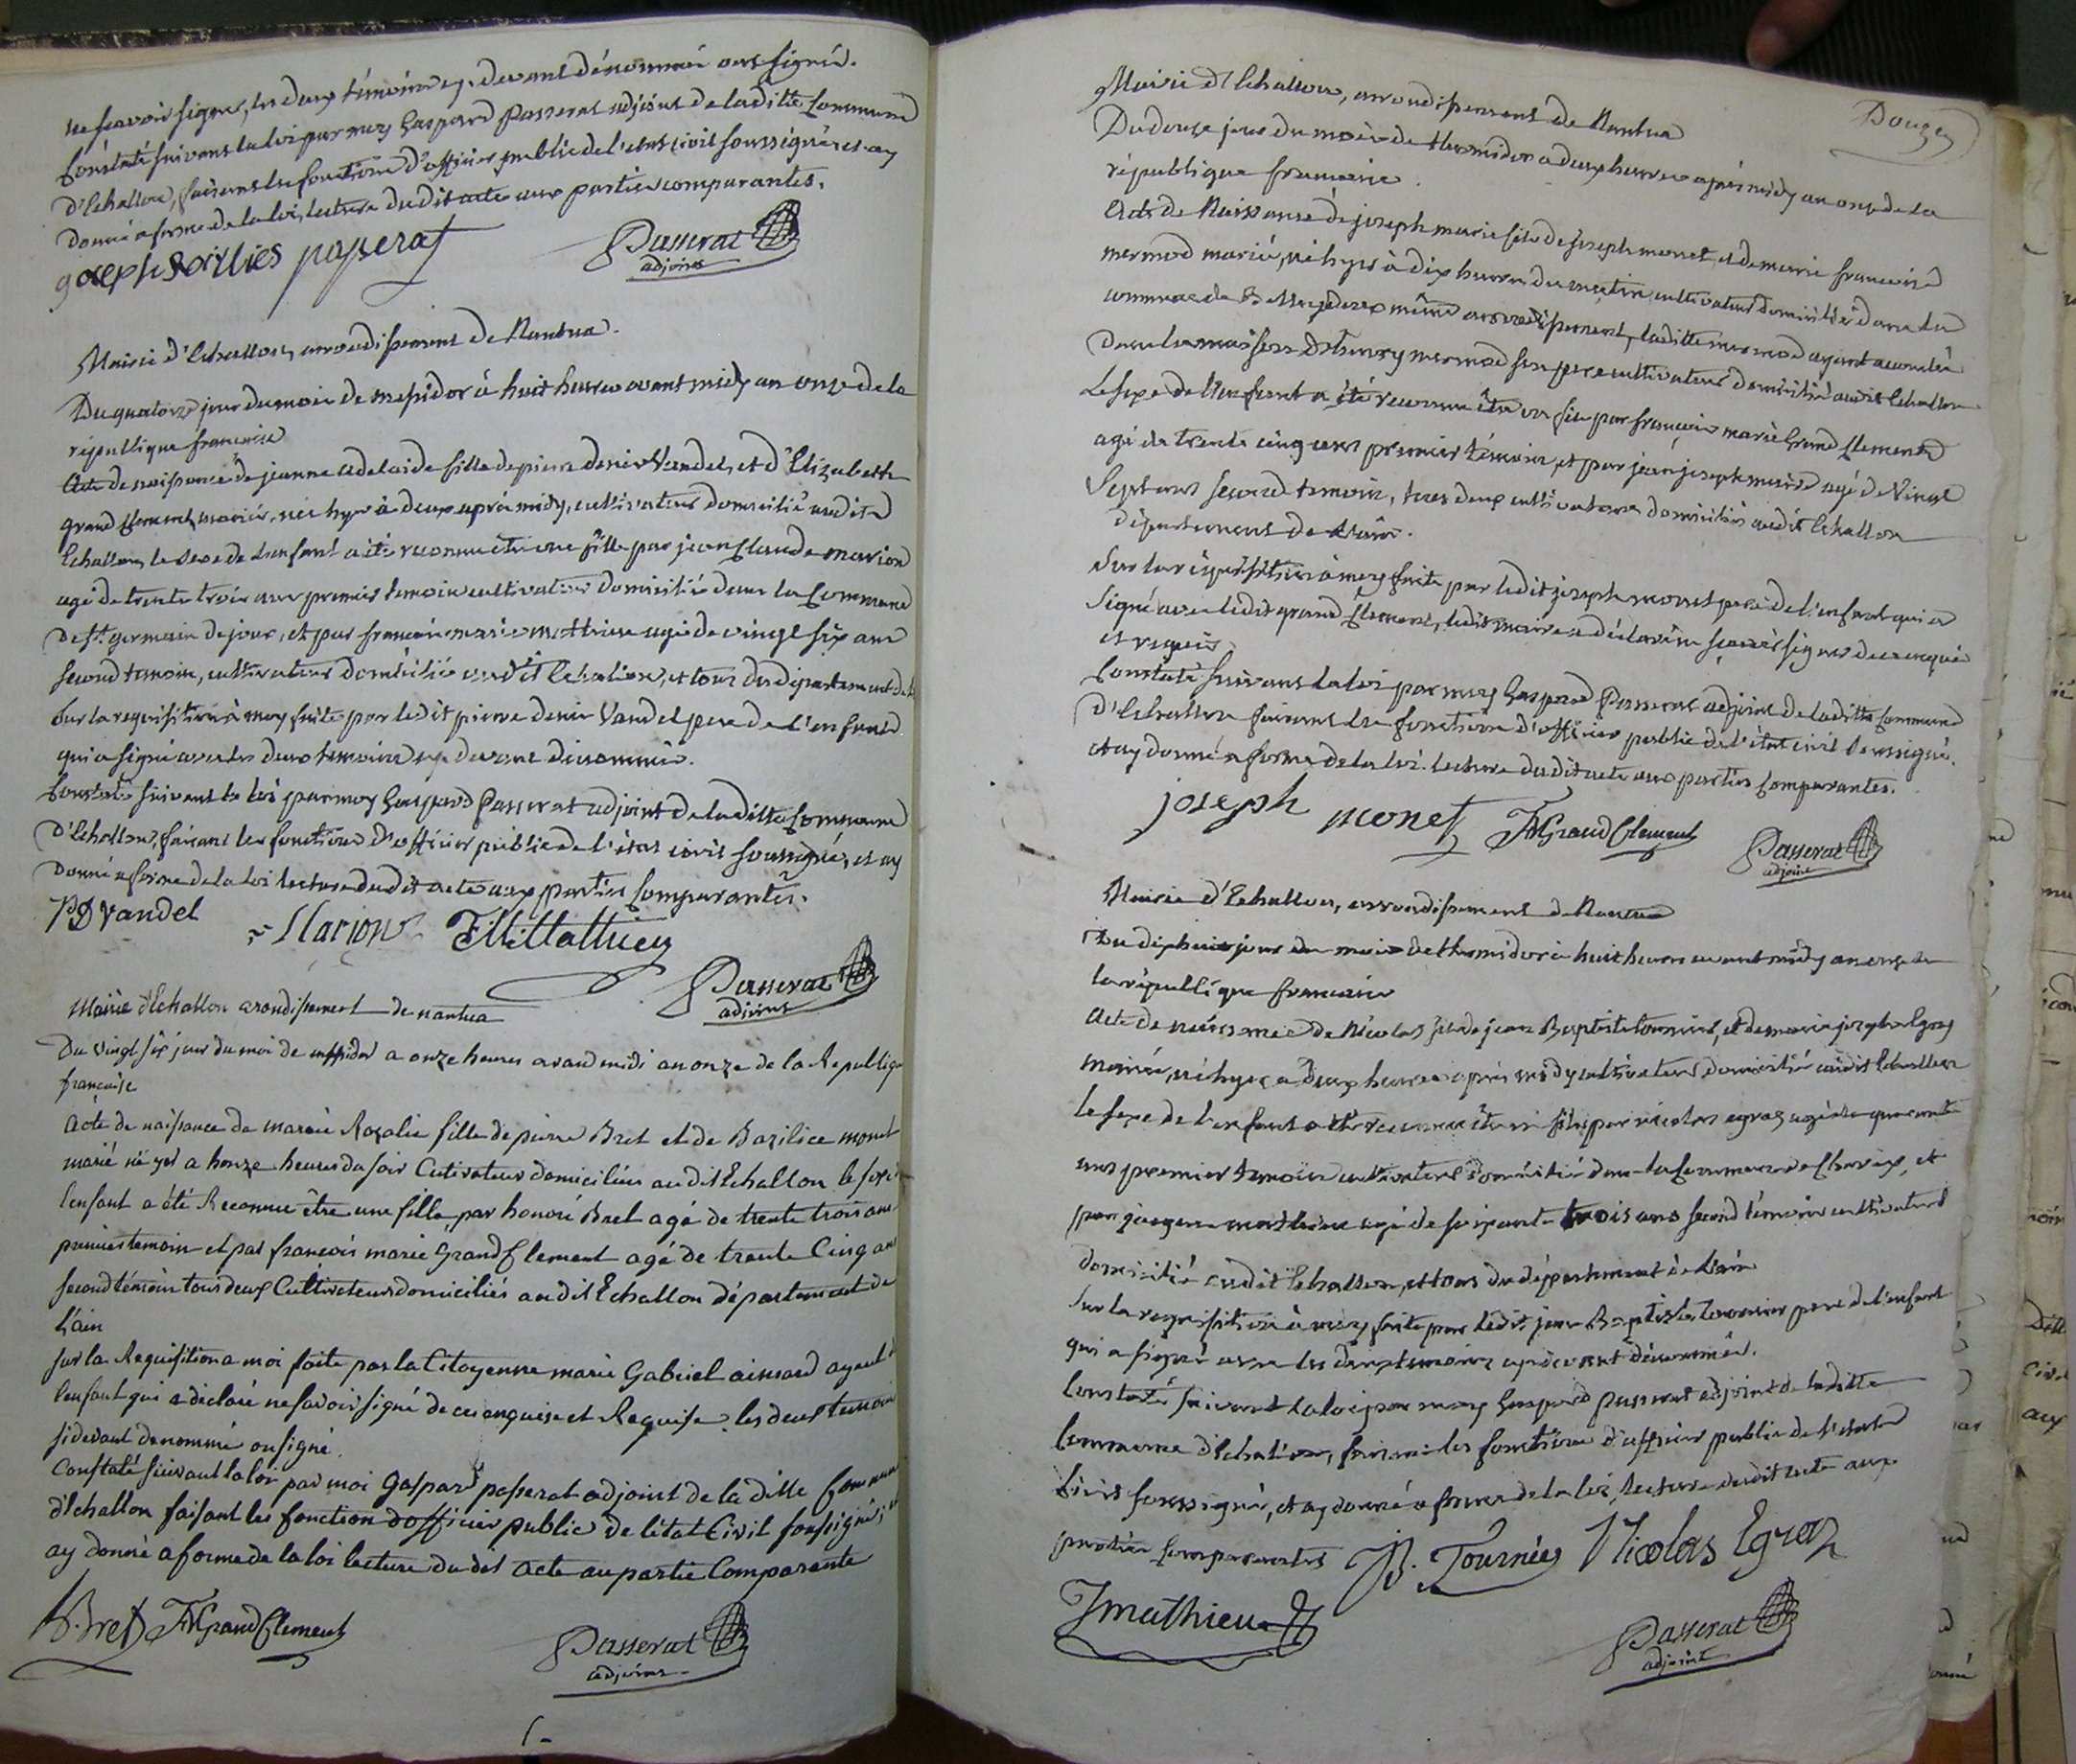 ne scavoir signer, les deux témoins cy devant dénommé ont signé.
Constaté suivant la loi par moy Gaspard Passerat adjoint de laditte Commune
d'Echallon, faisant les fonctions d'officier public de l'etat civil soussigné, et ay
donné a forme de la loi, lecture dudit acte aux parties comparantes.
joseph passerat
Passerat
adjoint
Mairie d'Echallon, arrondissement de Nantua.
Du quatorze jour du mois de messidor à huit heures avant midy an onze de la
république francaise
Acte de naissance de jeanne adelaide fille de pierre denis Vandel, et d'Elizabeth
grand Clement, mariés, née hyer à deux aprés midy, cultivateur domicilié audit
Echallon, le sexe de l'enfant a été reconnu être une fille par jean Claude marion
agé de trente trois ans premier temoin cultivateur domicilié dans la Commune
de St. germain de joux, et par francois marie mathieu agé de vingt six ans
second temoin, cultivateur domicilié audit Echallon, et tous du département de l
Sur la requisition à moy faite par ledit pierre denis Vandel pere de l'enfant
qui a signé avec les deux temoins cy devant dénommés.
Constaté suivant la loi par moy Gaspard Passerat adjoint de laditte Commune
d'Echallon, faisant les fonctions d'officier public de l'état civil soussigné, et ay
donné a forme de la loi lecture dudit acte aux parties Comparantes.
PD Vandel
Marion
FMMathieu
Passerat
adjoint
Mairie d'Echallon arondissement de nantua
Du vingt six jour du moi de messidor a onze heures avand midi an onze de la Republiqu
francaise
Acte de naissance de marie Rosalie fille de pierre Bret et de Bazilice monet
marié né yer a honze heures du soir Cutivateur domiciliés audit Echallon le sexe
l'enfant a été Reconnu être une fille par honoré Bret agé de trente trois ans
premier temoin et par francois marie Grand Clement agé de trente Cinq ans
second témoin tous deux Cultivateurs domiciliés audit Echallon département de
l'ain
sur la Requisition a moi faite par la Citoyenne marie Gabriel aimard ayeule
l'enfant qui a déclaré ne savoir signé de ce enquise et Requise. les deux temoin
sidevant denommé on signé.
Constaté suivant la loi par moi Gaspard passerat adjoint de la ditte Commune
d'Echallon faisant les fonction d'officier public de l'état Civil sousigné,
ay donné a forme de la loi lecture du dit acte au partie Comparente
h. Bret
FMGrandClement
Passerat
adjoint
Douze
Mairie d'Echallon, arrondissement de Nantua
Du douze jour du mois de thermidor a deux heures aprés midy an onze de la
république francaise.
Acte de Naissance de joseph marie fils de joseph monet, et de marie francoise
mermod mariés, né hyer à dix heures du matin cultivateur domicilié dans la
commune de même arrondissement, laditte mermod ayant accouchée
dans la maison d'henry mermod son pere cultivateur domicilié audit Echallon
Le sexe de l'enfant a été reconnu être un fils par francois marie Grand Clement
agé de trente cinq ans premier témoin, et par jean joseph maire agé de Vingt
Sept ans second temoin, tous deux cultivateurs domiciliés audit Echallon
département de l'ain.
Sur la réquisition à moy faite par ledit joseph monet pere de l'enfant qui a
signé avec ledit grand Clement, ledit maire a déclaré ne scavoir signer de ce enquis
et requis
Constaté suivant la loi par moy Gaspard Passerat adjoint de laditte Commune
d'Echallon faisant les fonctions d'officier public de l'état civil soussigné,
et ay donné a forme de la loi lecture dudit acte aux parties Comparantes.
joseph monet
FMGrandClement
Passerat
adjoint
Mairie d'Echallon, arrondissement de Nantua
Du dix huit jour du mois de thermidor à huit heures avant midy an onze de
la république francaise
Acte de naissance de Nicolas fils de jean Baptiste tournier, et de marie josephe Egraz
mariés, né hyer à deux heures aprés midy cultivateur domicilié audit Echallon
le sexe de l'enfant a été reconnu être un fils par nicolas egraz agé de quarante
ans premier temoin cultivateur domicilié dans la Commune de Charix, et
par jacques mathieu agé de soixante trois ans second témoin cultivateur
domicilié audit Echallon, et tous du département de l'ain
Sur la requisition à moy faite par ledit jean Baptiste tournier pere de l'enfant
qui a signé avec les deux temoins cy devant dénommés.
Constaté suivant la loi par moy Gaspard Passerat adjoint de laditte
Commune d'Echallon, faisant les fonctions d'officier public de l'état
Civil soussigné, et ay donné a forme de la loi, lecture dudit acte aux
parties Comparantes
JB. Tournier
Nicolas Egraz
Jmathieu
Passerat
adjoint